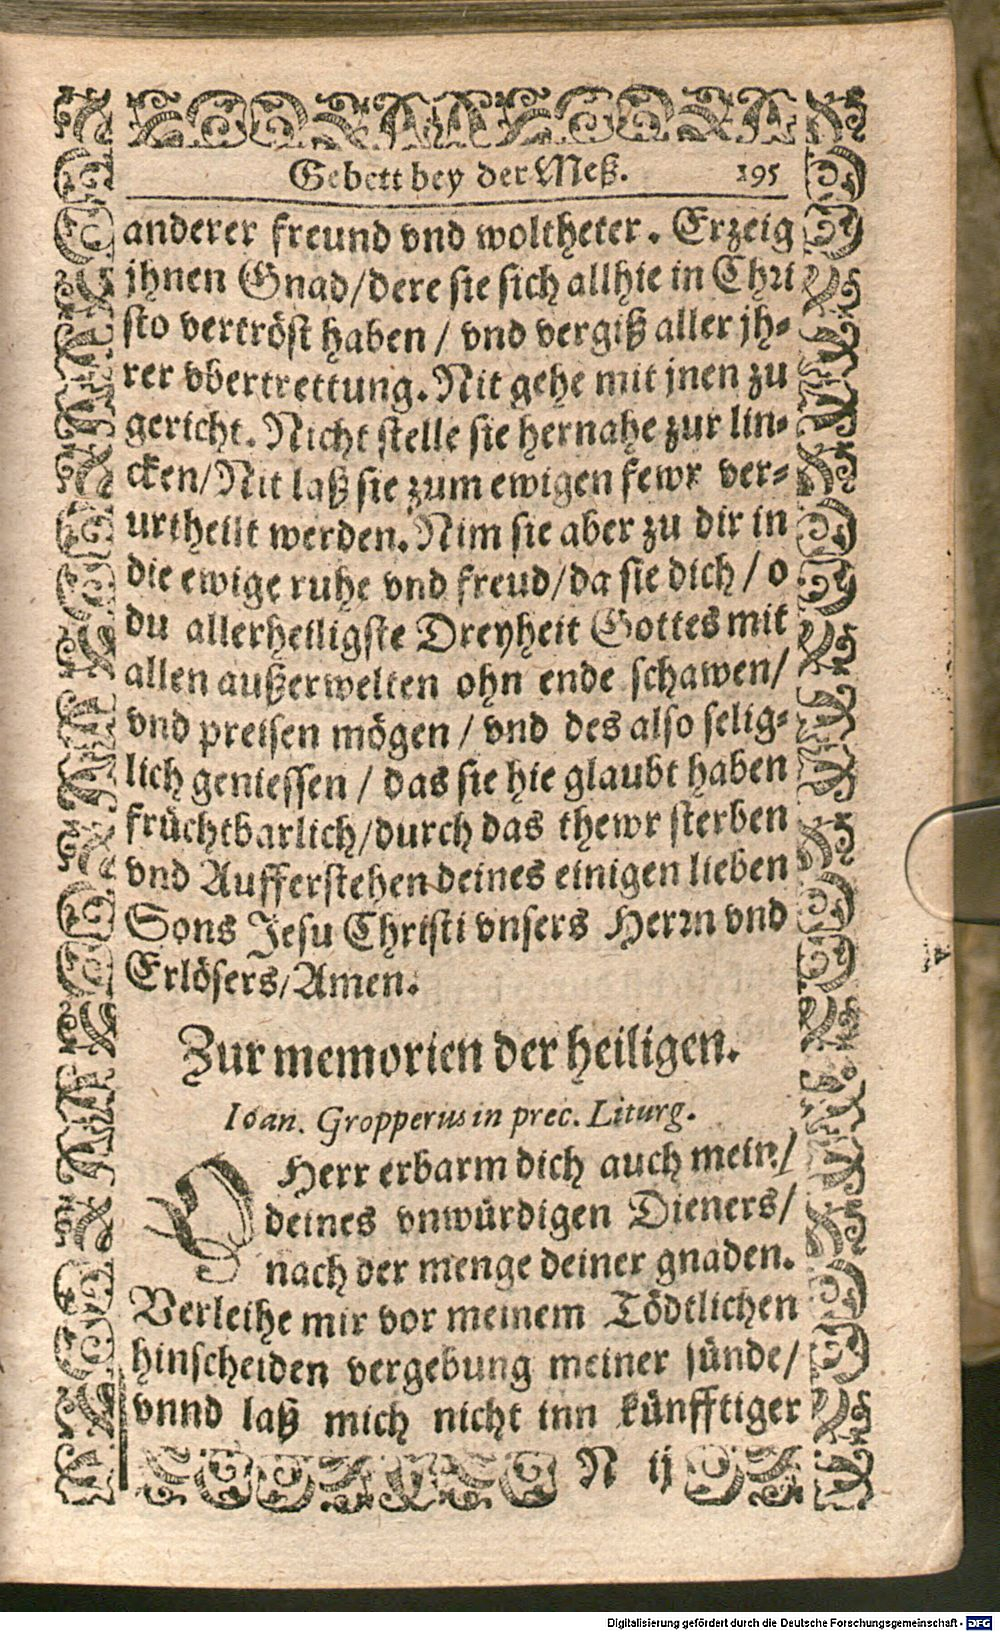 Gebett bey der Meß. 195
anderer freund vnd woltheter. Erzeig
jhnen Gnad/dere sie sich allhie in Chri
sto vertröst haben / vnd vergiß aller jh-
rer vbertrettung. Nit gehe mit jnen zu
gericht. Nicht stelle sie hernahe zur lin-
cken/Nit laß sie zum ewigen fewr ver-
urtheilt werden. Nim sie aber zu dir in
die ewige ruhe vnd freud/da sie dich / o
du allerheiligste Dreyheit Gottes mit
allen außerwelten ohn ende schawen/
vnd preisen mögen / vnd des also selig-
lich geniessen / das sie hie glaubt haben
früchtbarlich/durch das thewr sterben
vnd Aufferstehen deines einigen lieben
Sons Jesu Christi vnsers Herrn vnd
Erlösers/Amen.
Zur memorien der heiligen.
Ioan. Gropperus in prec. Liturg.
O Herr erbarm dich auch mein/
deines vnwürdigen Dieners/
nach der menge deiner gnaden.
Verleihe mir vor meinem Tödtlichen
hinscheiden vergebung meiner sünde/
vnnd laß mich nicht inn künfftiger
N ij
Digitalisierung gefördert durch die Deutsche Forschungsgemeinschaft - DFG